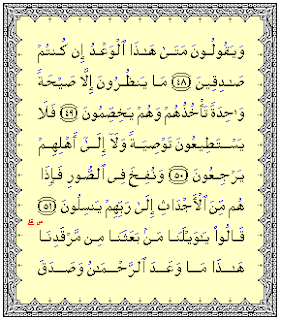 وَيَقُولُونَ مَتَىٰ هَـٰذَا ٱلْوَعْدُ إِن كُنتُمْ
صَـٰدِقِينَ ﴿٤٨﴾ مَا يَنظُرُونَ إِلَّا صَيْحَةً
وَٰحِدَةً تَأْخُذُهُمْ وَهُمْ يَخِصِّمُونَ ﴿٤٩﴾ فَلَا
يَسْتَطِيعُونَ تَوْصِيَةً وَلَآ إِلَىٰٓ أَهْلِهِمْ
يَرْجِعُونَ ﴿٥٠﴾ وَنُفِخَ فِى ٱلصُّورِ فَإِذَا
هُم مِّنَ ٱلْأَجْدَاثِ إِلَىٰ رَبِّهِمْ يَنسِلُونَ ﴿٥١﴾
قَالُوا۟ يَـٰوَيْلَنَا مَنۢ بَعَثَنَا مِن مَّرْقَدِنَا
هَـٰذَا مَا وَعَدَ ٱلرَّحْمَـٰنُ وَصَدَقَ